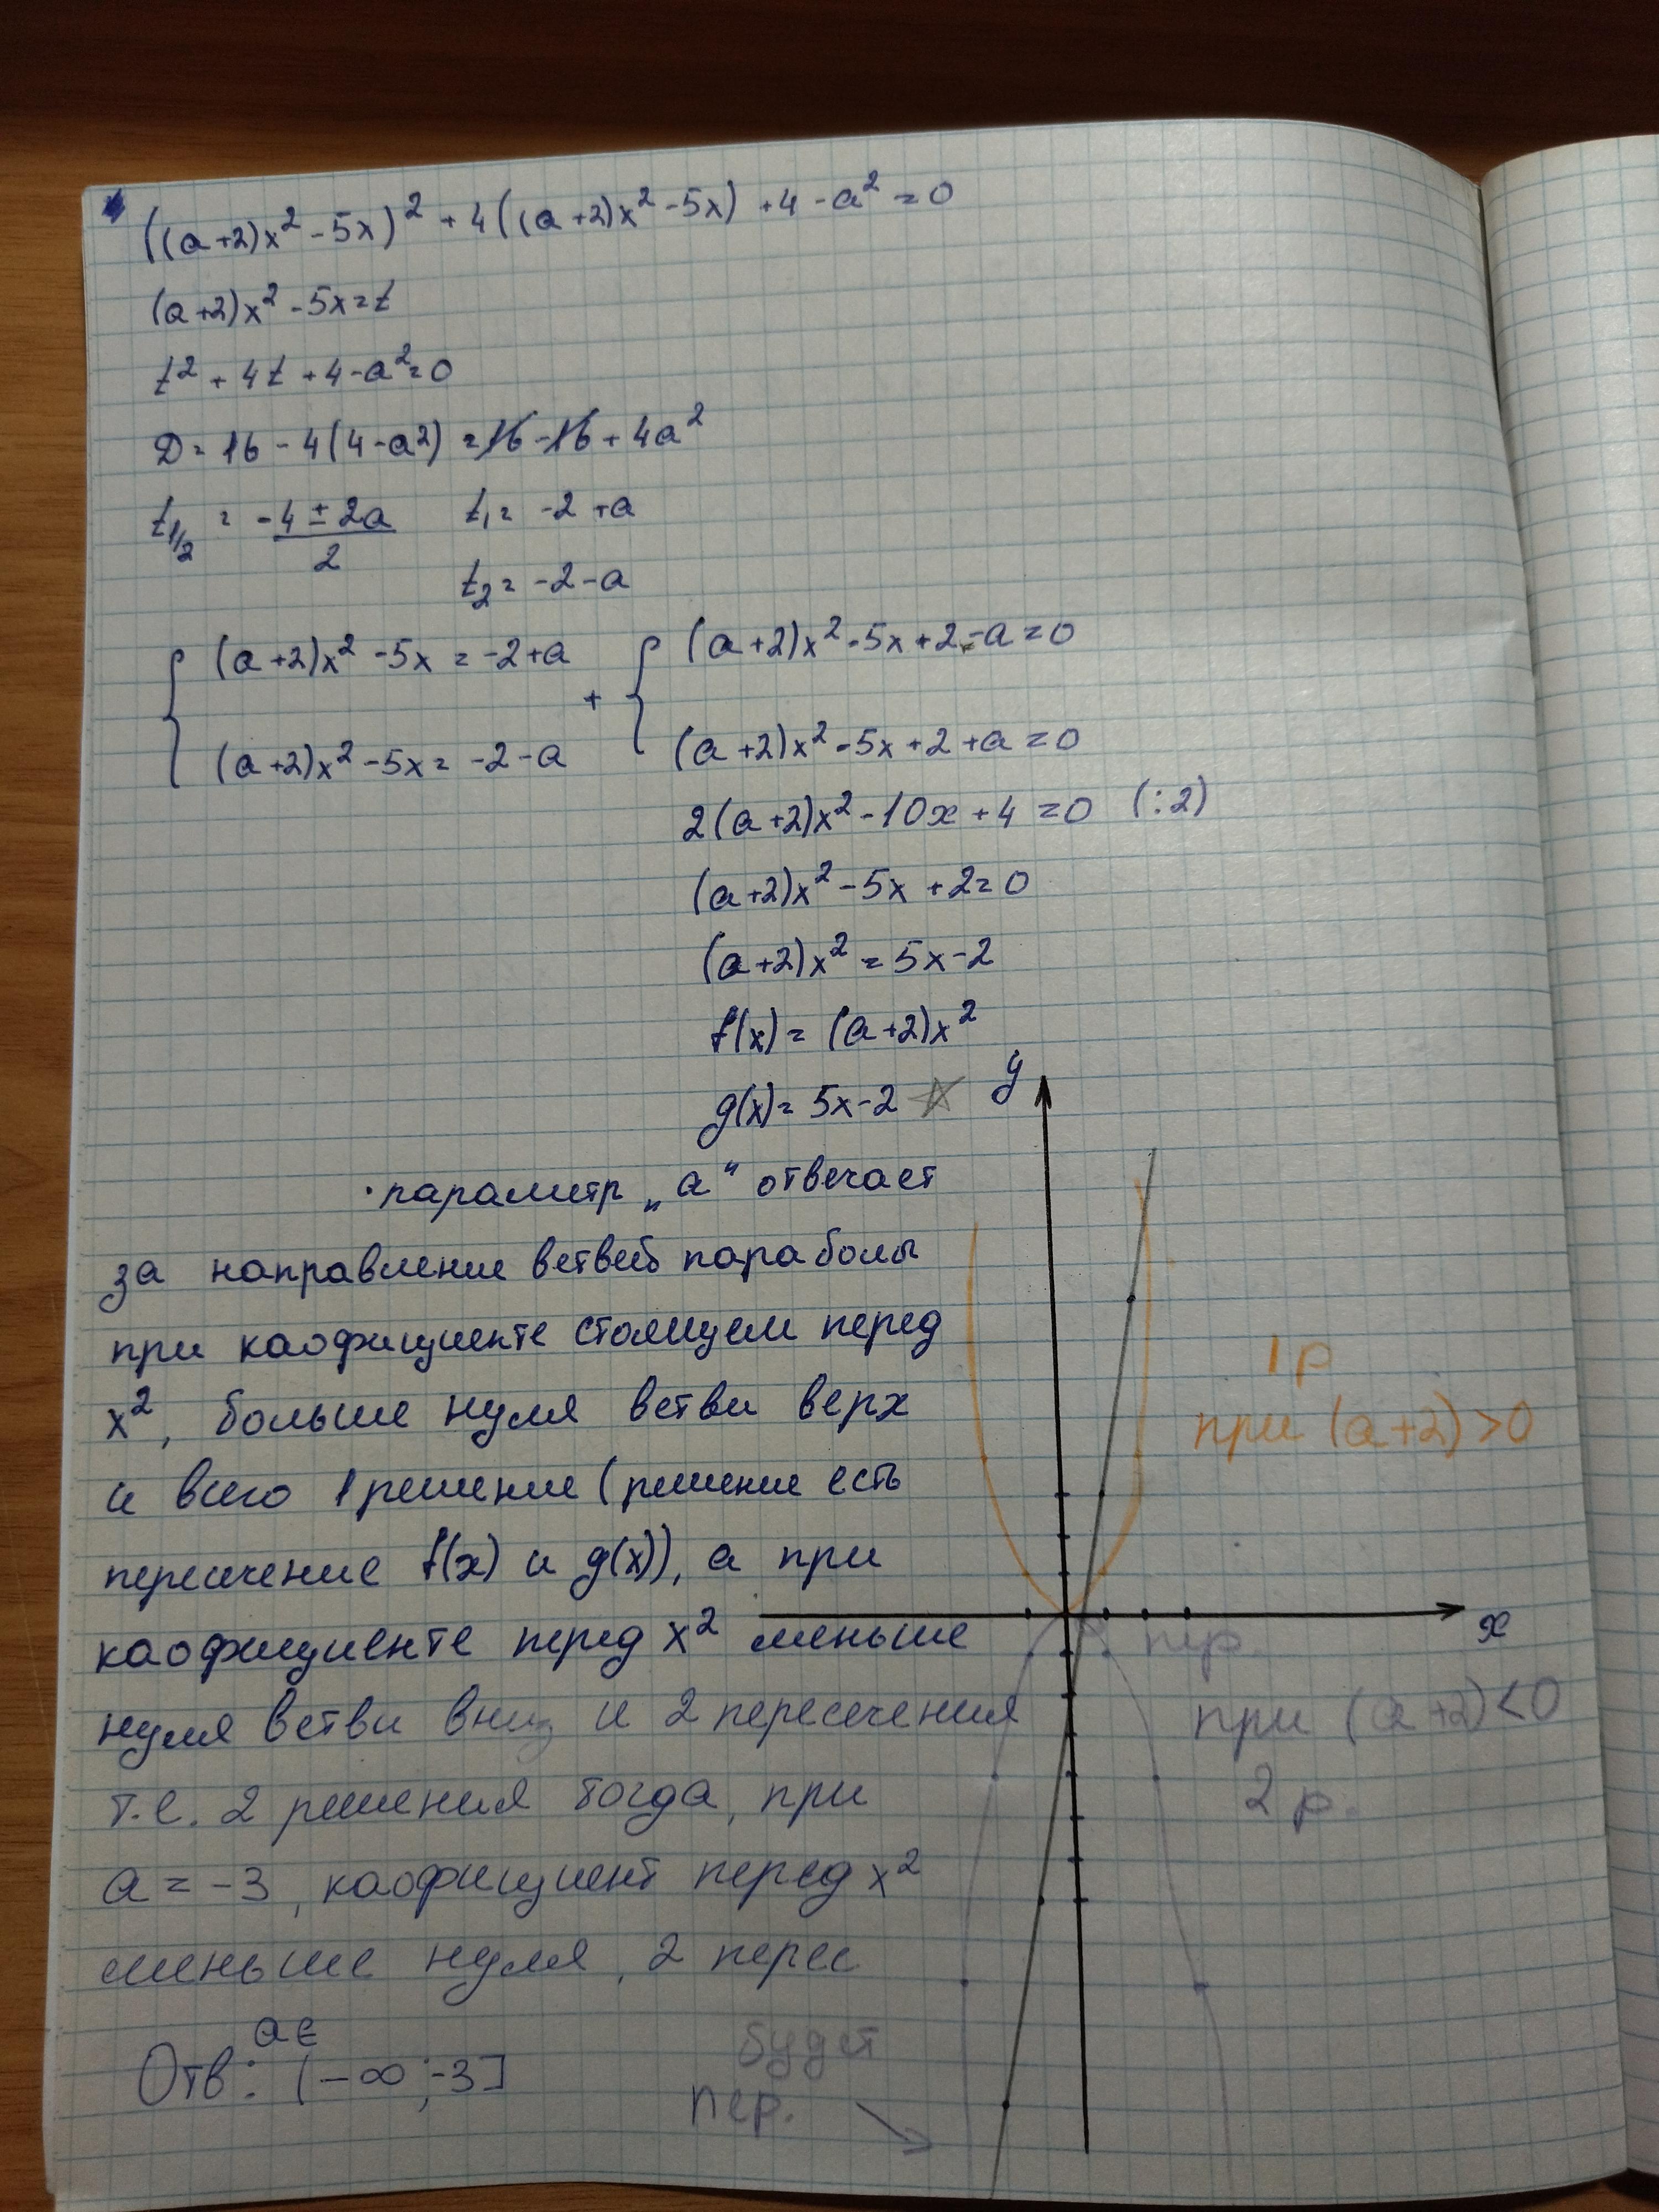 ((a+2)x² - 5x)² + 4((a+2)x² - 5x) + 4 - a² = 0
(a+2)x² - 5x = t
t² + 4t + 4 - a² = 0
D = 16 - 4(4 - a²) = 16 - 16 + 4a²
t1/2 = (-4 ± 2a)/2 t₁ = -2 + a
t₂ = -2 - a
{ (a+2)x² - 5x = -2 + a + { (a+2)x² - 5x + 2 - a = 0
(a+2)x² - 5x = -2 - a (a+2)x² - 5x + 2 + a = 0
2(a+2)x² - 10x + 4 = 0 (:2)
(a+2)x² - 5x + 2 = 0
(a+2)x² = 5x - 2
f(x) = (a+2)x²
g(x) = 5x - 2 ☆
y
• параметр „а“ отвечает
за направление ветвей параболы
при каофициенте стоящем перед
x², больше нуля ветви верх
и всего 1 решение (решение есть
пересечение f(x) и g(x)), а при
каофициенте перед x² меньше
нуля ветви вниз и 2 пересечения
т.е. 2 решения тогда, при
a = -3, каофициент перед x²
меньше нуля, 2 перес
a ∈
Отв: (-∞; -3]
1р
при (a+2) > 0
x
пер.
при (a+2) < 0
2 р.
будет
пер.